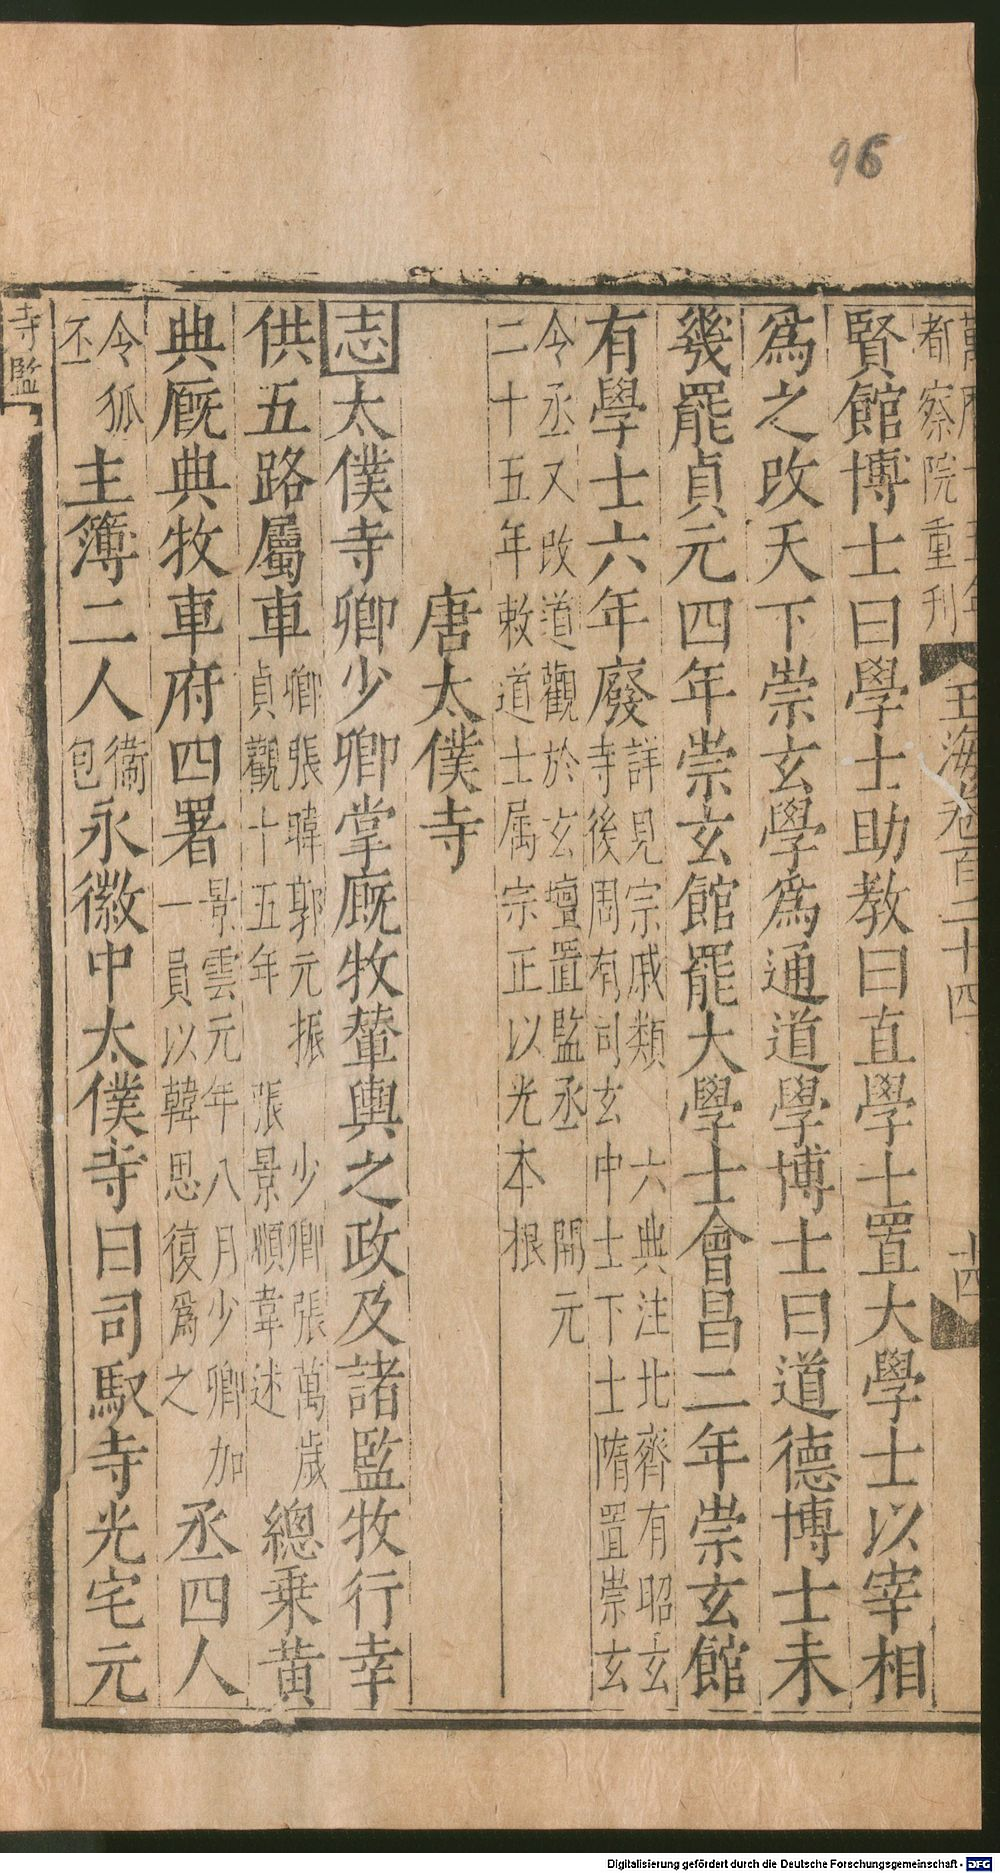 96
都察院重刊
玉海卷百二十四
十四
賢館博士曰學士助教曰直學士置大學士以宰相
爲之改天下崇玄學爲通道學博士曰道德博士未
幾罷貞元四年崇玄館罷大學士會昌二年崇玄館
有學士六年廢詳見宗戚類 六典注北齊有昭玄
寺後周有司玄中士下士隋置崇玄
令丞又改道觀於玄壇置監丞 開元
二十五年敕道士属宗正以光本根
唐太僕寺
志太僕寺卿少卿掌廐牧輦輿之政及諸監牧行幸
供五路屬車卿張暐郭元振 少卿張萬歲
貞觀十五年 張景順韋述總乗黄
典廐典牧車府四署景雲元年八月少卿加
一員以韓思復爲之丞四人
令狐
丕主簿二人衞
包永徽中太僕寺曰司馭寺光宅元
寺監
Digitalisierung gefördert durch die Deutsche Forschungsgemeinschaft - DFG